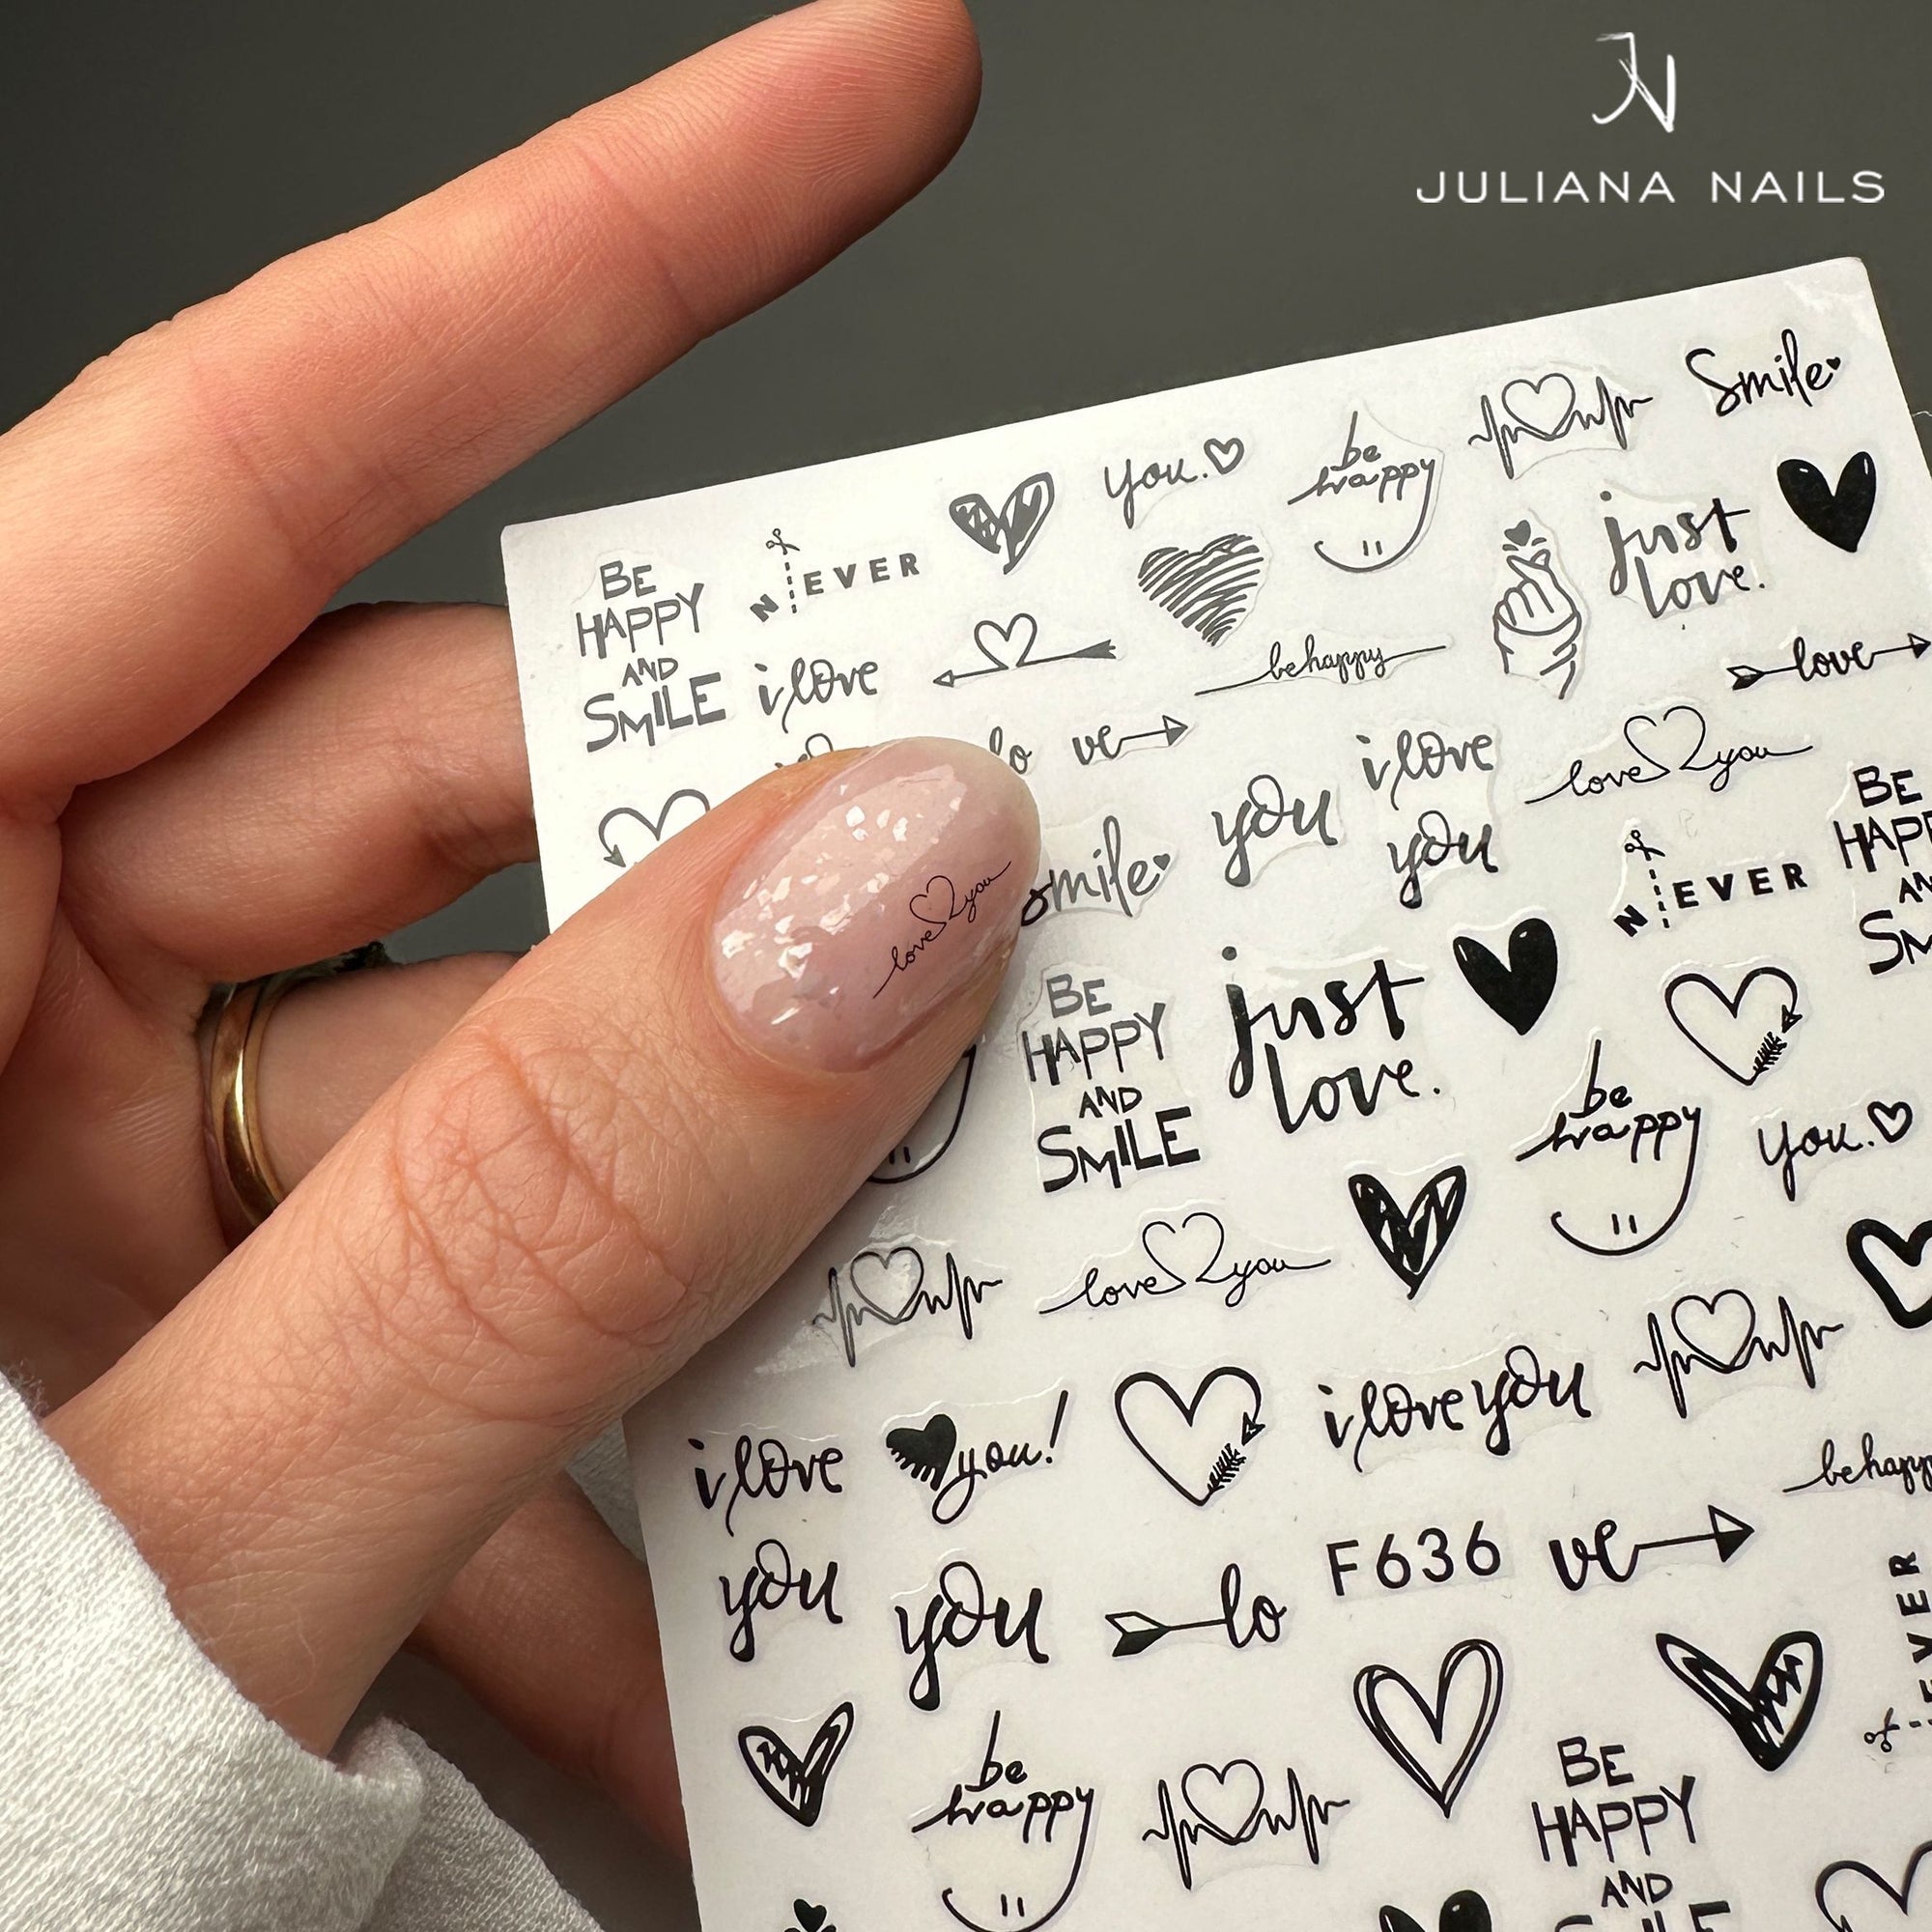 JN
JULIANA NAILS
Smile
be
happy
you.
just
love.
N EVER
BE
HAPPY
AND
SMILE
i love
be happy
love
lo ve
i love
you
you
love you
BE
N EVER
smile
love you
BE
HAPPY
AND
SMILE
just
love.
be
happy
you.
love you
i love
you
you!
i love you
be
F636
ve
you
lo
EVER
be
happy
BE
HAPPY
AND